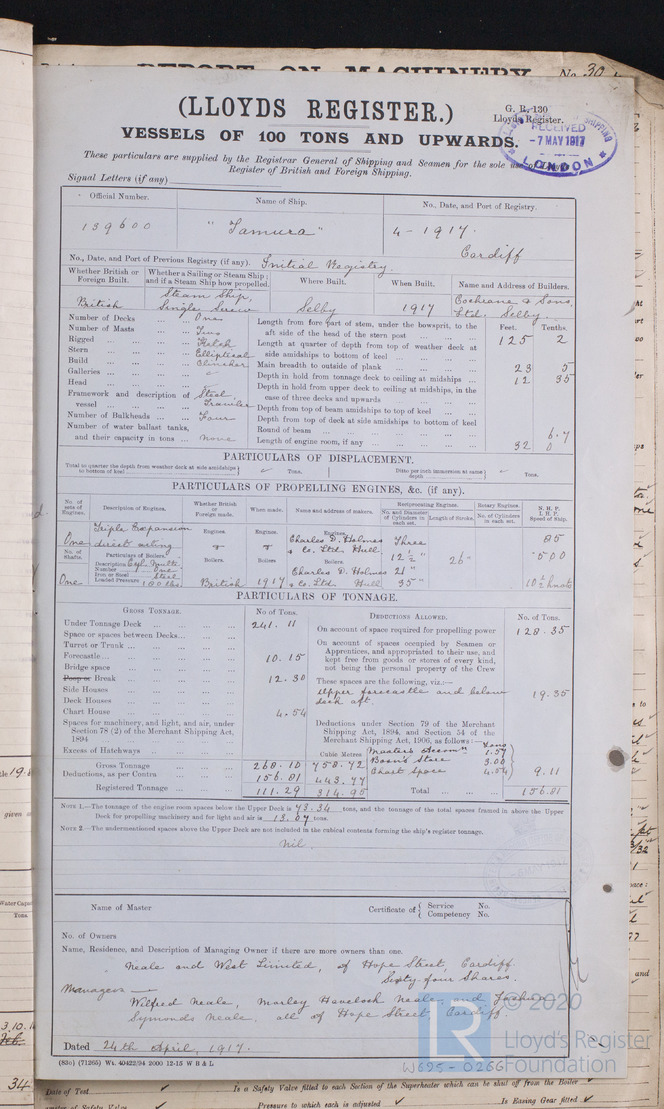 REPORT ON MACHINERY No. 30
(LLOYDS REGISTER.)
G. R. 130
Lloyds Register.
VESSELS OF 100 TONS AND UPWARDS.
RECEIVED
-7 MAY 1917
LONDON
These particulars are supplied by the Registrar General of Shipping and Seamen for the sole use of Lloyd's
Register of British and Foreign Shipping.
Signal Letters (if any)
Official Number. Name of Ship. No., Date, and Port of Registry.
139600 "Tamura" 4-1917.
Cardiff
No., Date, and Port of Previous Registry (if any). Initial Registry.
Whether British or Foreign Built. Whether a Sailing or Steam Ship; and if a Steam Ship how propelled. Where Built. When Built. Name and Address of Builders.
British Steam Ship, Single Screw Selby 1917 Cochrane & Sons, Ltd. Selby.
Number of Decks One
Number of Masts Two
Rigged Ketch
Stern Elliptical
Build Clincher
Galleries
Head
Framework and description of vessel Steel Trawler
Number of Bulkheads Four
Number of water ballast tanks, and their capacity in tons none
Feet. Tenths.
Length from fore part of stem, under the bowsprit, to the aft side of the head of the stern post 125 2
Length at quarter of depth from top of weather deck at side amidships to bottom of keel
Main breadth to outside of plank 23 5
Depth in hold from tonnage deck to ceiling at midships 12 35
Depth in hold from upper deck to ceiling at midships, in the case of three decks and upwards
Depth from top of beam amidships to top of keel
Depth from top of deck at side amidships to bottom of keel
Round of beam 6.7
Length of engine room, if any 32 0
PARTICULARS OF DISPLACEMENT.
Total to quarter the depth from weather deck at side amidships to bottom of keel Tons. Ditto per inch immersion at same depth Tons.
PARTICULARS OF PROPELLING ENGINES, &c. (if any).
No. of sets of Engines. Description of Engines. Whether British or Foreign made. When made. Name and address of makers. Reciprocating Engines. Rotary Engines. N. H. P.
No. and Diameter of Cylinders in each set. Length of Stroke. No. of Cylinders in each set. I. H. P. Speed of Ship.
One Triple Expansion direct acting Engines. Engines. Engines. Charles D. Holmes & Co. Ltd. Hull. Three 85
No. of Shafts. Particulars of Boilers. Boilers Boilers Boilers. 12½" 26" 500
Description Cyl. Multr.
Number One
Iron or Steel Steel
Loaded Pressure 180 lbs
One British 1917 Charles D. Holmes & Co. Ltd. Hull 21" 35" 10½ knots
PARTICULARS OF TONNAGE.
GROSS TONNAGE. No. of Tons.
Under Tonnage Deck 241.11
Space or spaces between Decks
Turret or Trunk
Forecastle 10.15
Bridge space
Poop or Break 12.30
Side Houses
Deck Houses
Chart House 4.54
Spaces for machinery, and light, and air, under Section 78 (2) of the Merchant Shipping Act, 1894
Excess of Hatchways
Cubic Metres
Gross Tonnage 268.10 758.72
Deductions, as per Contra 156.81 443.77
Registered Tonnage 111.29 314.95
DEDUCTIONS ALLOWED. No. of Tons.
On account of space required for propelling power 128.35
On account of spaces occupied by Seamen or Apprentices, and appropriated to their use, and kept free from goods or stores of every kind, not being the personal property of the Crew
These spaces are the following, viz.:—
Upper forecastle and below deck aft. 19.35
Deductions under Section 79 of the Merchant Shipping Act, 1894, and Section 54 of the Merchant Shipping Act, 1906, as follows:—
Tons
Master's Accomn 1.57
Bosn's Store 3.00
Chart Space 4.54
9.11
Total 156.81
NOTE 1.—The tonnage of the engine room spaces below the Upper Deck is 73.34 tons, and the tonnage of the total spaces framed in above the Upper
Deck for propelling machinery and for light and air is 13.07 tons.
NOTE 2.—The undermentioned spaces above the Upper Deck are not included in the cubical contents forming the ship's register tonnage.
Nil.
Name of Master Certificate of { Service No. Competency No.
No. of Owners
Name, Residence, and Description of Managing Owner if there are more owners than one.
Neale and West Limited, of Hope Street, Cardiff.
Sixty four Shares.
Managers —
Wilfred Neale, Morley Havelock Neale, and Joshua
Symonds Neale, all of Hope Street, Cardiff.
Dated 24th April, 1917.
(85c) (71265) Wt. 40422/94 2000 12-15 W B & L
W695-0266
LR
© 2020
Lloyd's Register
Foundation
Date of Test
Is a Safety Valve fitted to each Section of the Superheater which can be shut off from the Boiler
Pressure to which each is adjusted
Is Easing Gear fitted